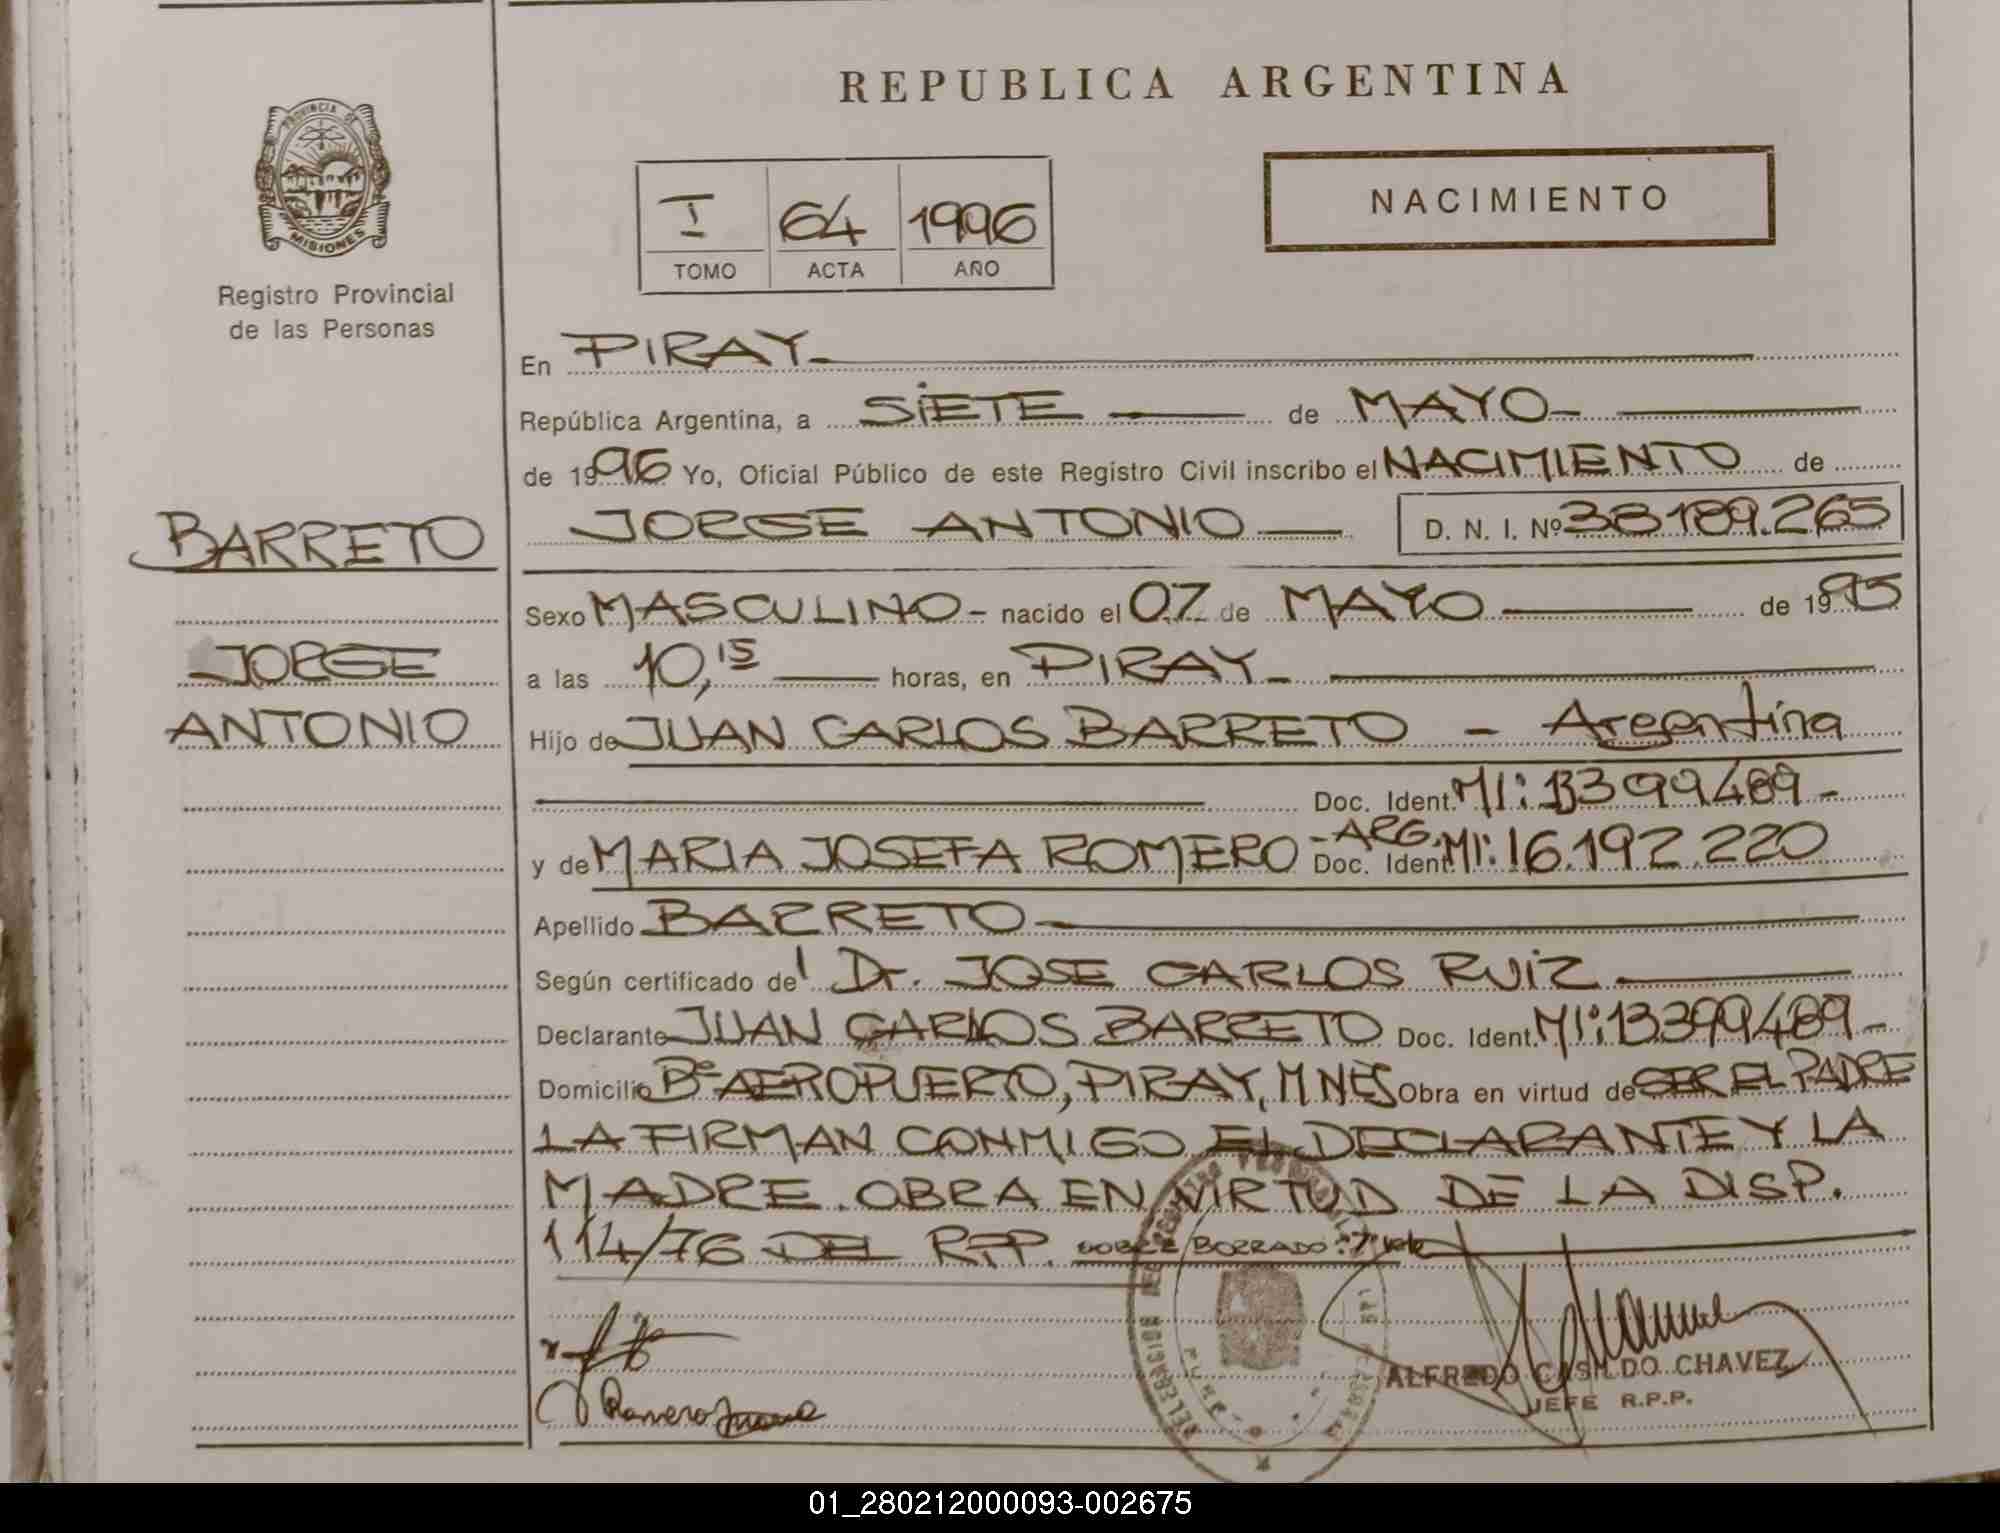 REPUBLICA ARGENTINA
PROVINCIA DE
MISIONES
Registro Provincial
de las Personas
NACIMIENTO
I 64 1996
TOMO ACTA AÑO
En PIRAY.
República Argentina, a SIETE de MAYO
de 1996 Yo, Oficial Público de este Registro Civil inscribo el NACIMIENTO de
BARRETO
JORGE ANTONIO D. N. I. Nº 38189.265
Sexo MASCULINO - nacido el 07 de MAYO de 1995
JORGE
a las 10,15 horas, en PIRAY
ANTONIO
Hijo de JUAN CARLOS BARRETO - Argentina
Doc. Ident. MI: 13399489 -
y de MARIA JOSEFA ROMERO - ARG. Doc. Ident. MI: 16.192.220
Apellido BARRETO
Según certificado de Dr. JOSE CARLOS RUIZ
Declarante JUAN CARLOS BARRETO Doc. Ident. MI: 13399489 -
Domicilio Bº AEROPUERTO, PIRAY, MNES Obra en virtud de SER EL PADRE
LA FIRMAN CONMIGO EL DECLARANTE Y LA
MADRE. OBRA EN VIRTUD DE LA DISP.
114/76 DEL RPP. SOBRE BORRADO: "7" vale
Romero
ALFREDO CASILDO CHAVEZ
JEFE R.P.P.
01_280212000093-002675